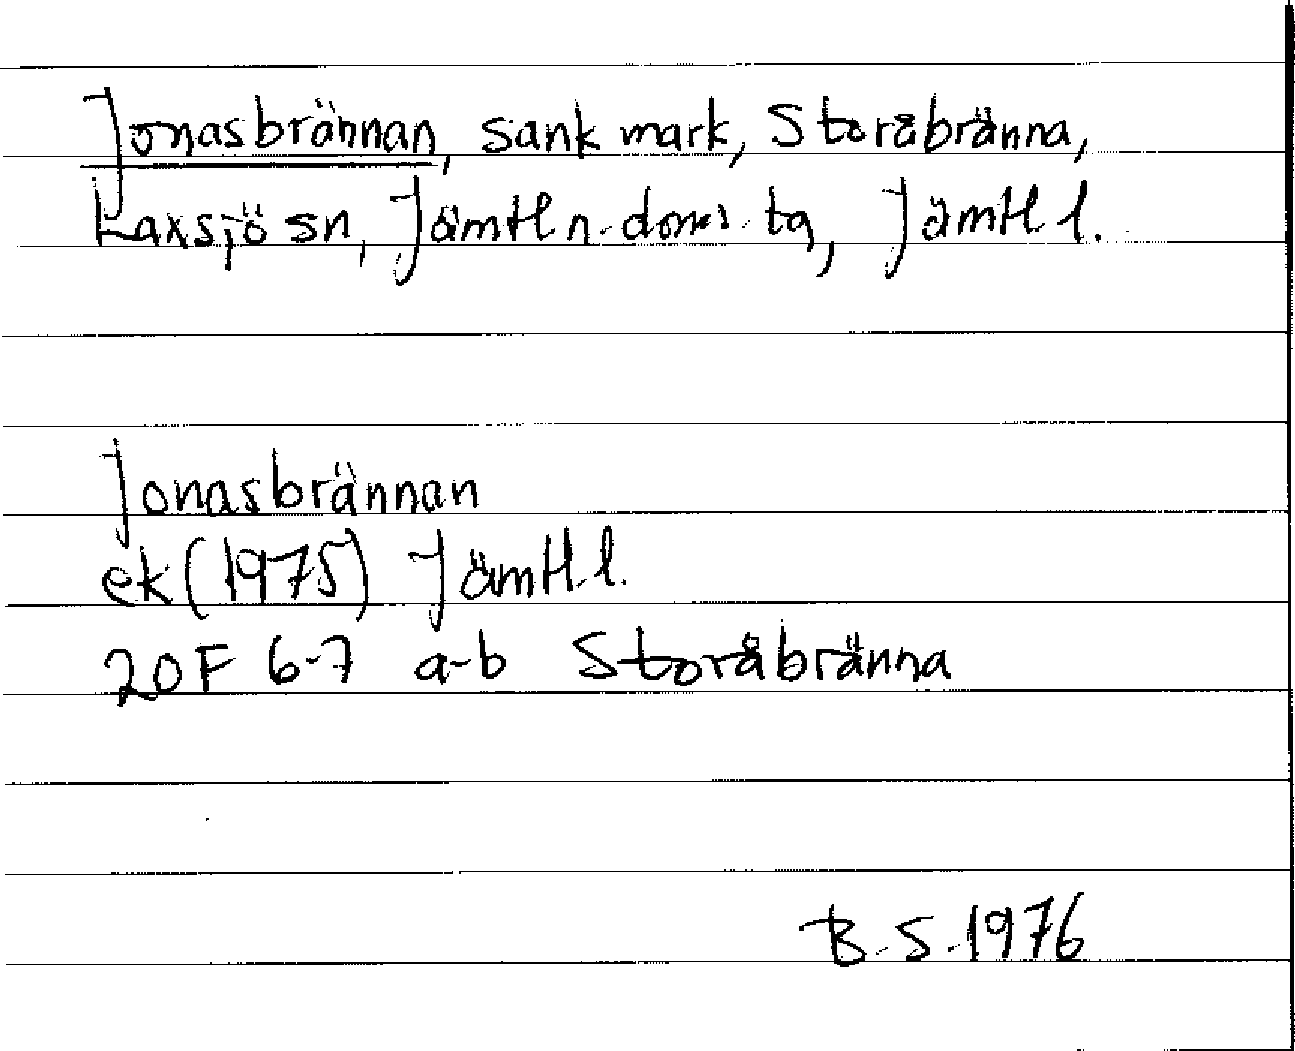 Jonasbrännan, sank mark, Storåbränna,
Laxsjö sn, Jämtl n. doms. tg, Jämtl l.
Jonasbrännan
ek (1975) Jämtl. l.
20F 6-7 a-b Storåbränna
B.S. 1976